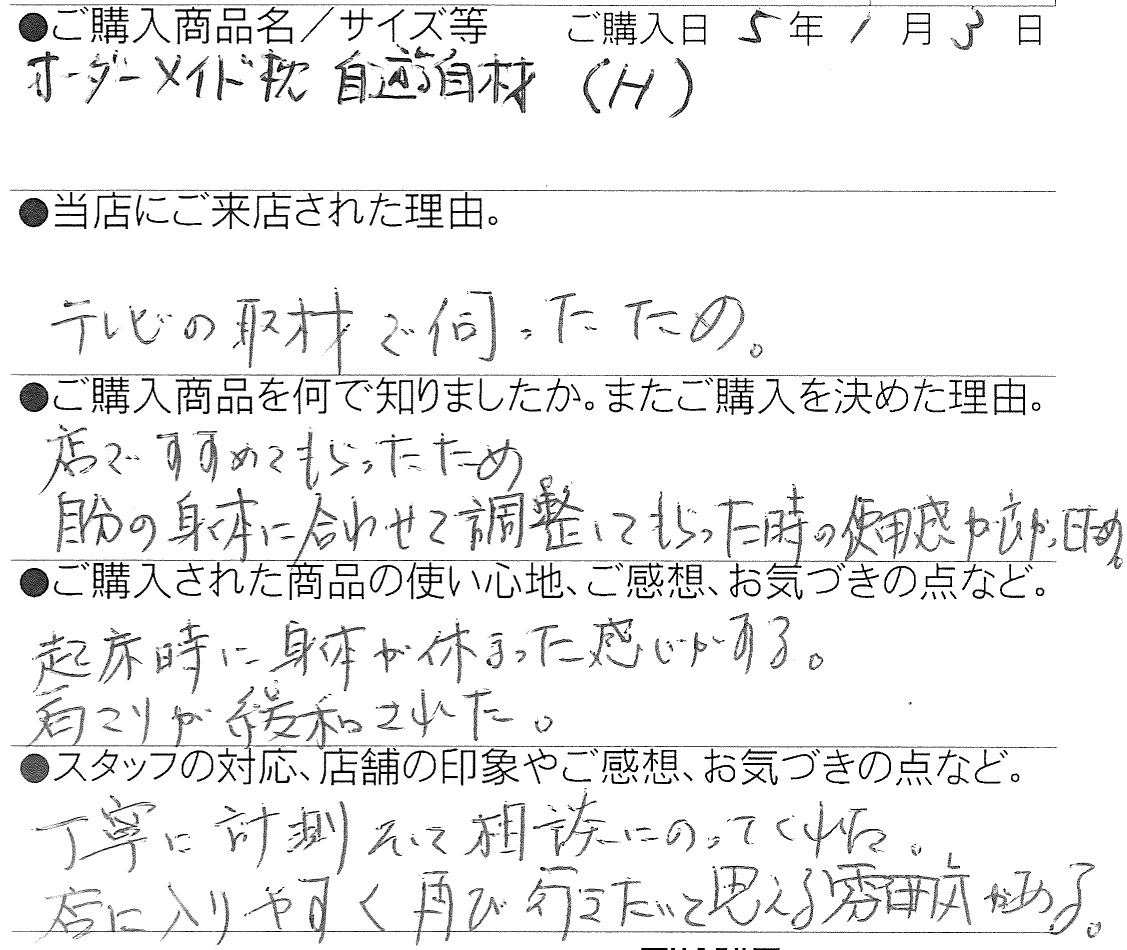 ●ご購入商品名／サイズ等 ご購入日 5年1月3日
オーダーメイド枕 自遊自材 (H)
●当店にご来店された理由。
テレビの取材で伺ったため。
●ご購入商品を何で知りましたか。またご購入を決めた理由。
店ですすめてもらったため
自分の身体に合わせて調整してもらった時の使用感が良かったため。
●ご購入された商品の使い心地、ご感想、お気づきの点など。
起床時に身体が休まった感じがする。
肩こりが緩和された。
●スタッフの対応、店舗の印象やご感想、お気づきの点など。
丁寧に計測そして相談にのってくれた。
店に入りやすく再び行きたいと思える雰囲気がある。